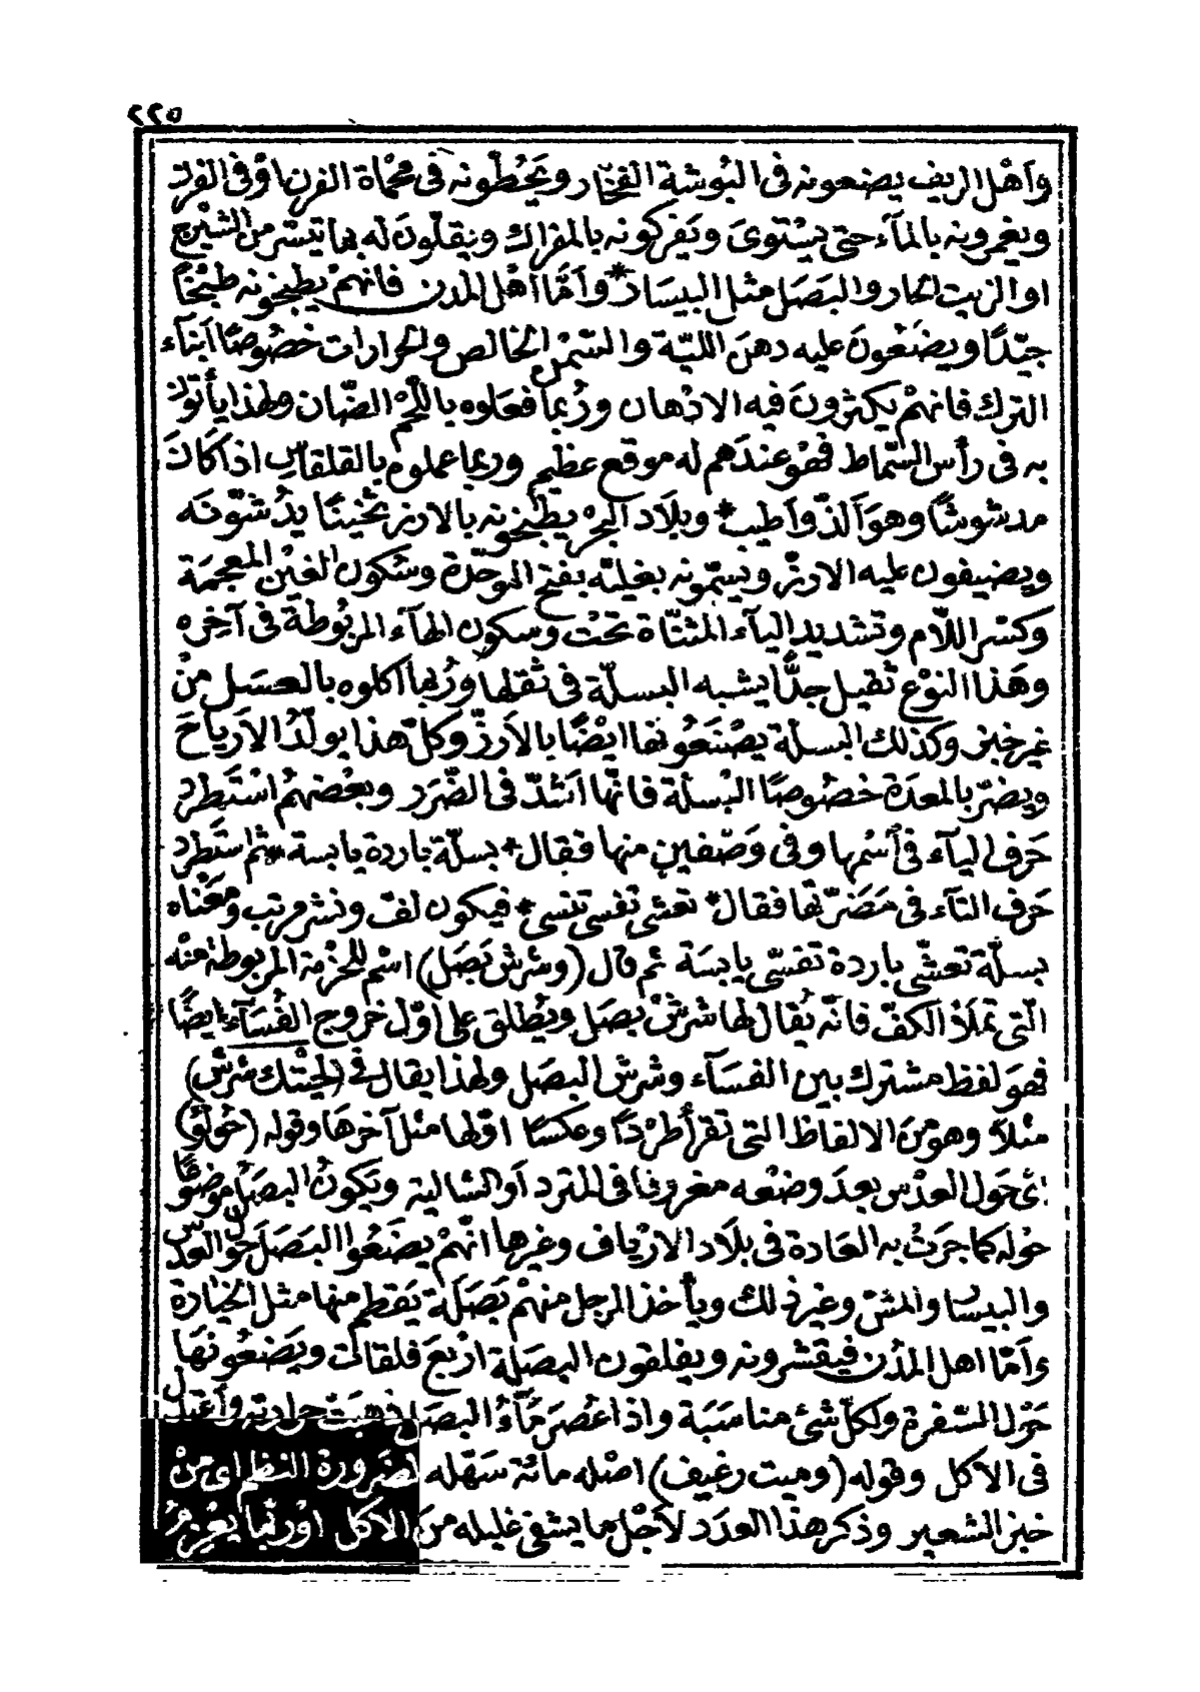 ٢٢٥
وأهل الريف يصنعونه فى البُوشة الفخّار ويحُطّونه فى محْماة الفرن أوْ فى الفرن
ويغمرونه بالمآء حتى يسْتوىَ ويَفركونه بالمفراك ويقلّونَ له بما تيسّر من الشيْرج
او الزيت الحار والبَصَل مثل البيسار * وأمّا أهْل المدن فانهمْ يطبخونه طبْخًا
جيّدًا ويضَعُونَ عليه دهنَ الليّة والسّمْنَ الخالص والحرارات خصُوصًا أبْناء
الترك فانهمْ يكثرونَ فيه الادْهان ورُبما فعَلوه باللّحْم الضّان ولهذا يأتونَ
به فى رأس السّماط فهُو عندَهم له موقع عظيم وربما عملوه بالقلقاس اذا كانَ
مدشوشًا وهوَ ألذّ وأطيب * وبلاد البحْر يطبْخونه بالارز ثخينًا يدُشّونَه
ويضيفون عليه الارزّ ويسمّونه بغيليّه بفتح الموحّدة وسُكون الغيْن المعجمَة
وكسْر اللاّم وتشديد اليآء المثنّاة تحْت وسكون الهآء المرْبُوطة فى آخِره
وهَذا النوْع ثقيل جدًّا يشبه البسلّة فى ثقلها ورُبما اكلوه بالعسَل منْ
غير خبز وكذلك البسلّة يصْنَعُونها ايْضًا بالأرزّ وكلّ هذا يولّدُ الأرياحَ
ويضرّ بالمعدَة خصُوصًا البْسلّة فانّها أشدّ فى الضّرَر وبعْضهُم اسْتَطرد
حَرف اليآء فى أسْمها وفى وَصْفين منها فقال * بسلّة باردة يابسة * ثم استَطرد
حَرف التآء فى مَضَرّتها فقال * تعشى تفسى تنسى * فيكون لف ونشر مرتب ومعْناه
بسلّة تعشّى باردة تفسّى يابسَة ثم قال (وشرش بَصَل) اسْم للحُزْمة المربوطة منْه
الّتى تملأ الكفّ فانّه يُقال لها شرشُ بصَل ويُطلق على أوّل خروج الفُسَآء ايضًا
فهوَ لفظ مشترك بين الفسَآء وشرش البصَل ولهذا يقال فى (لحيْتك شرش)
مثلاً وهو منَ الالفاظ التى تقرأ طرْدًا وعكسًا اوّلها مثل آخرهَا وقوله (حُولُو)
أىْ حَول العدْس بعدَ وضْعه مغروفا فى المترد أو الشالية ويَكونُ البصَلُ موضُوعًا
حوله كما جرَتْ به العَادة فى بلاَد الارْياف وغيرها انّهمْ يضَعُوا البَصَلَ حوْل العدس
والبيسار والمشّ وغير ذلك ويأخذ الرجل منهمْ بَصَلَة يَقطم منها مثل الخيارَة
وأمّا اهل المدُن فيقشرونه ويفلقون البصَلة ارْبعَ فلقات ويَضعُونَها
حَوْل السّفرة ولكلّ شئ مناسَبَة واذا عُصرَ مآءُ البصَل ذهبَت حرارته وأعتدل
فى الأكل وقوله (وميت رغيف) اصْله مائة سَهّله لضَرورَة النظم اى منْ
خبز الشعير وذكر هذا العدَد لأجْل ما يشفى غليله منَ الاكل اوْ ربّما يعْزمُ